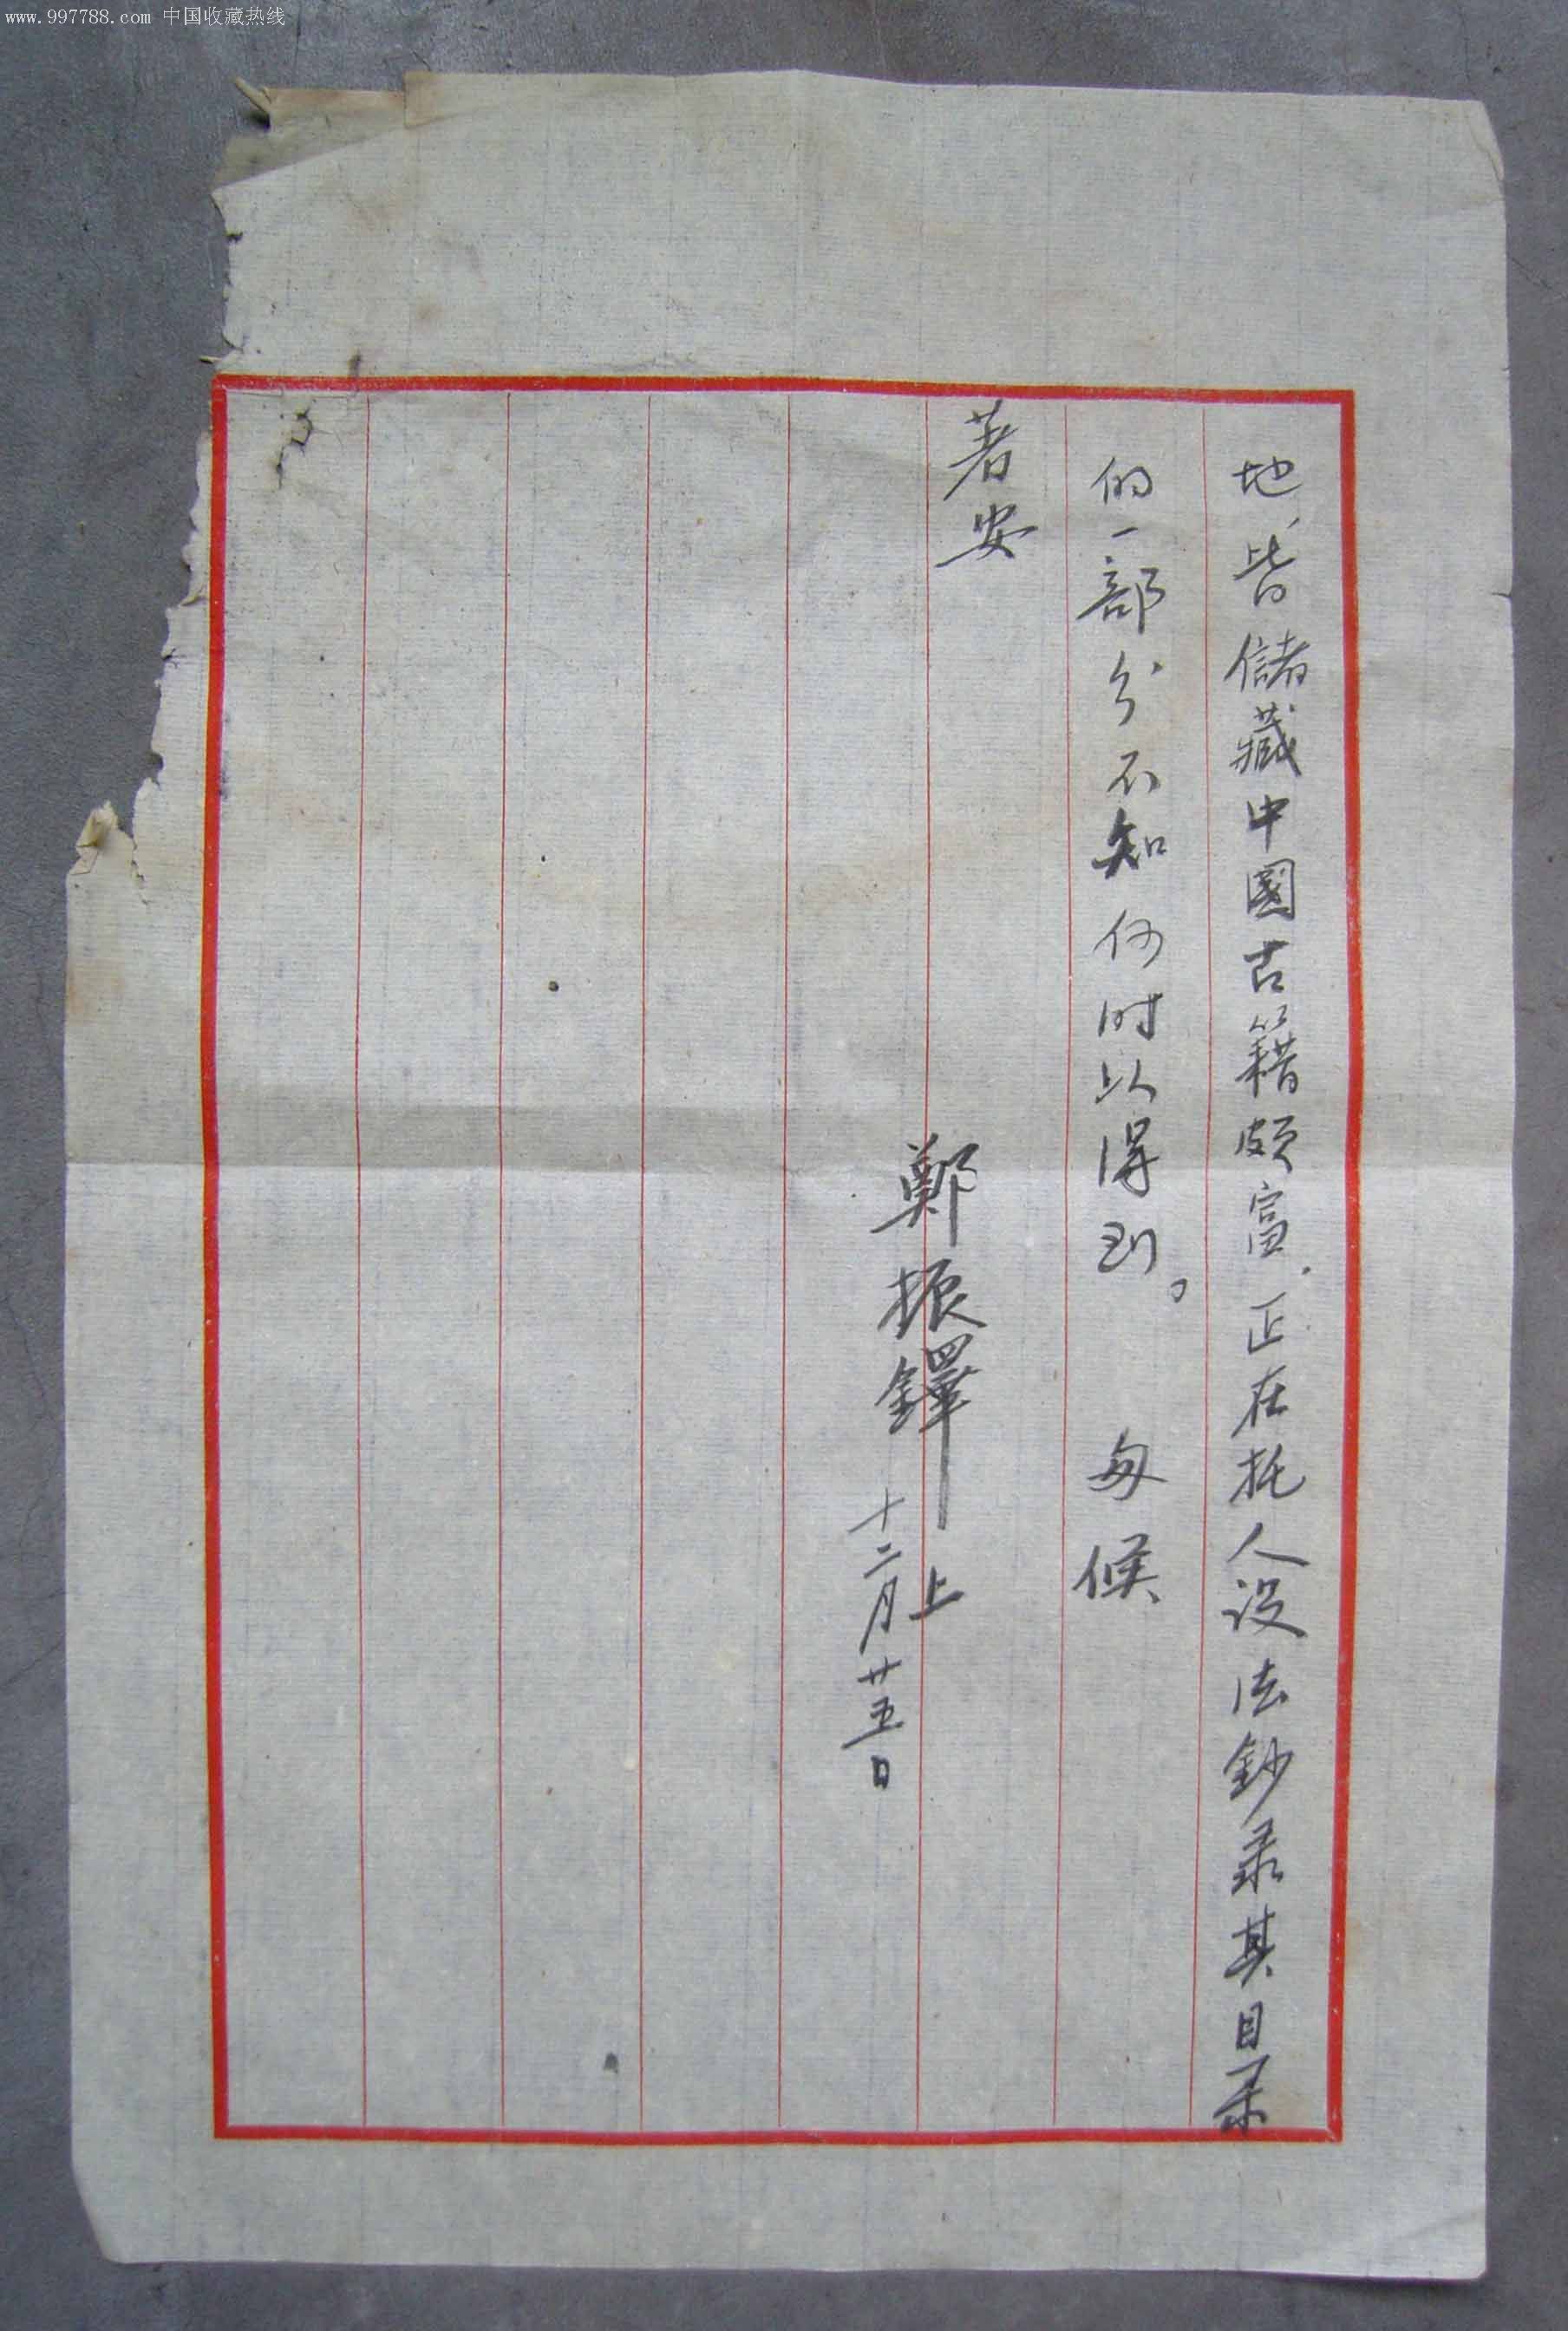 www.997788.com 中国收藏热线
地、皆儲藏中國古籍頗富.正在托人设法鈔录其目录
的一部分不知何时以得到。 匆候
著安
鄭振鐸上
十二月廿五日